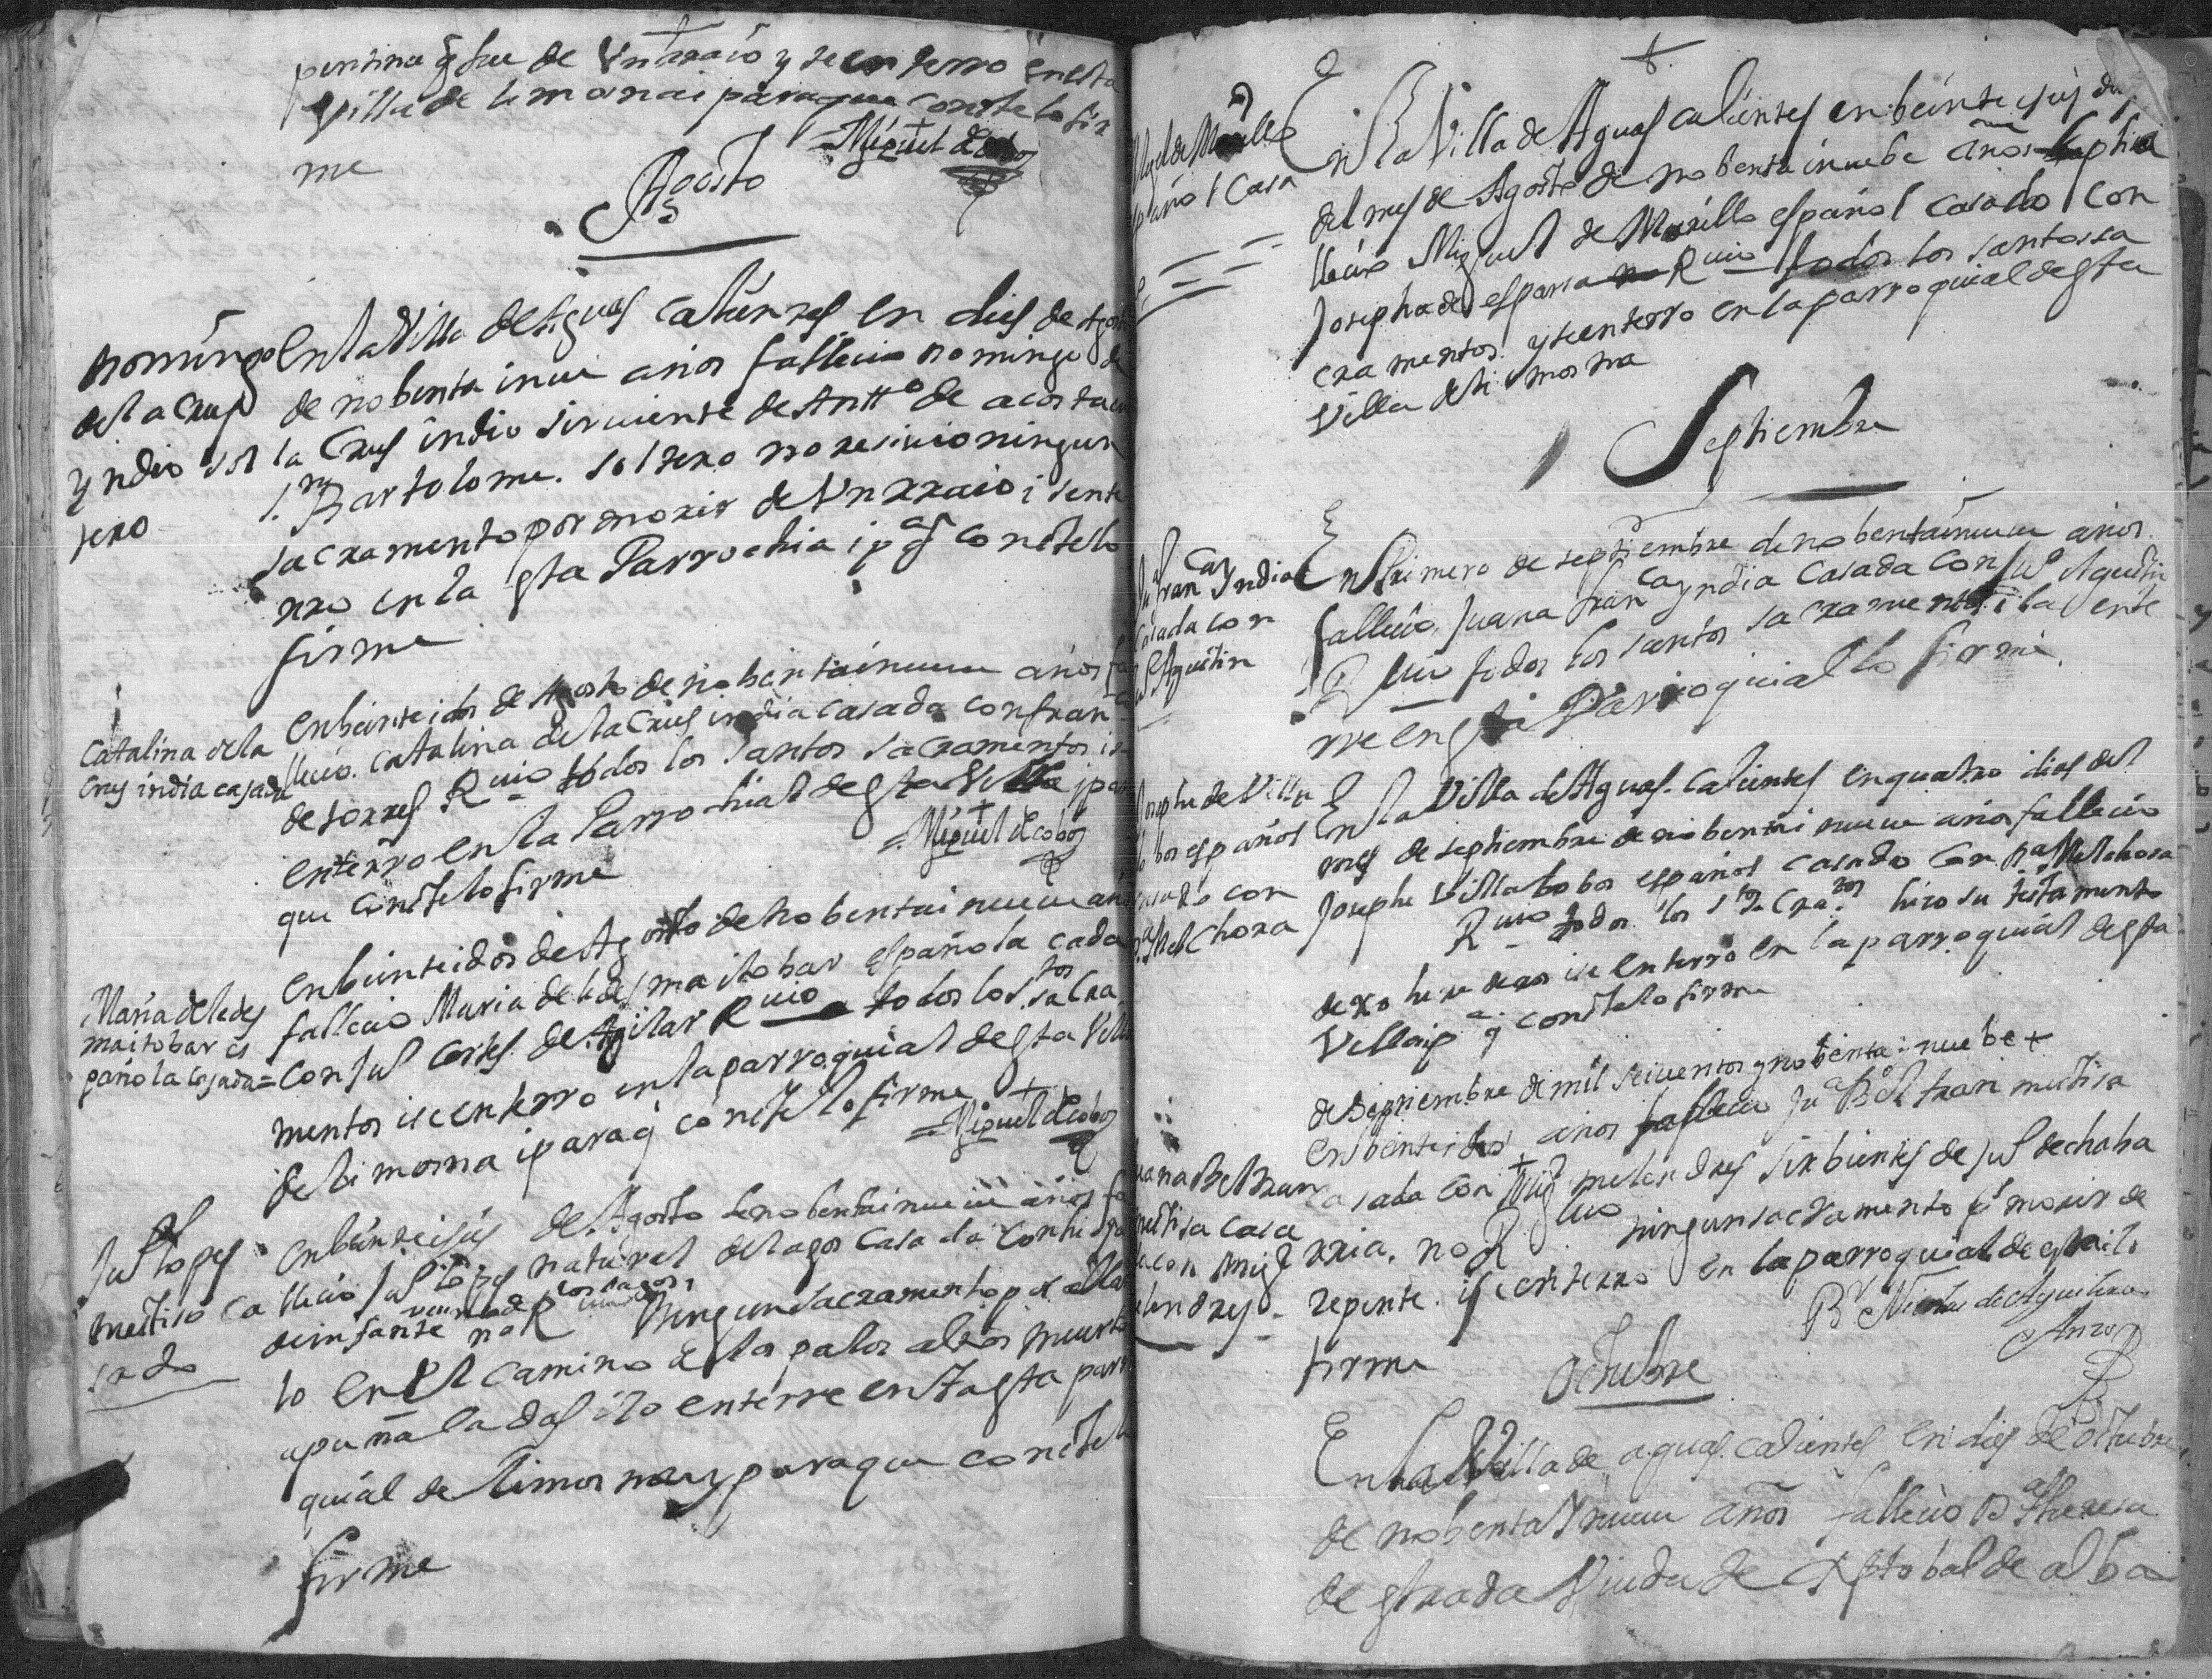 pentina q̃ fue de Vn rraio y se enterro en esta
Villa de limosna i para que conste lo fir
me
= Miguel de Cobos
Agosto
Domingo
de la Crus
yndio sol
tero
En la Villa de Aguas calientes en dies de Agosto
de nobenta inueue años fallecio Domingo de
la Crus indio siruiente de Antto de acosta en
S. Bartolome. soltero no resiuio ningun
sacramento por morir de Vn rraio i sente
rro en la esta Parrochia i pa q̃ conste lo
firme
Catalina de la
Crus india casada
en beinte i dos de Agosto de nobenta inueue años fa
llecio. Catalina de la Crus india casada con fran
de torres Ruio todos los santos sacramentos i se
enterro en la Parrochial de esta Villa i para
que conste lo firme
= Miguel de Cobos
Maria de ledes
ma i tobar es
pañola casada =
en beinte i dos de Agosto de nobenta i nueue añ
fallecio Maria de ledesma i tobar española cada
con Ju Cortes de Agilar Ruio todos los stos sacra
mentos i se enterro en la parroquial de esta Villa
de limosna i para q̃ conste lo firme
= Miguel de Cobos
Ju lopes
mestiso ca
sado
en beinte i seis de Agosto de nobenta i nueue años fa
llecio Ju lopes natural de lagos casada con
de infante vecino de los lagos no R ningun sacramento por allar
lo en el camino de los palos altos muerto
apuñaladas i lo enterre en la esta parr
quial de limosna y para que conste l
firme
Miguel de Morillo
español Casa
En la Villa de Aguas calientes en beinte i seis dias
del mes de Agosto de nobenta i nuebe años
llecio Miguel de Morillo español casado con
Josepha de esparsa Ruio todos los santos sa
cramentos y se enterro en la parroquial de esta
Villa de limosna
Septiembre
Ju fran ca Yndia
casada con
Ju Agustin
En Primero de septiembre de nobenta inueue años
fallecio, Juana fran ca yndia casada con Ju Agustin
Ruio todos los santos sacramentos i la ente
rre en esta Parroquial lo firme
Josephe de Villa
lobos español
casado con
Da Melchora
En la Villa de Aguas calientes en quatro dias del
mes de septiembre de nobenta i nueue años fallecio
Josephe Villalobos español casado con Da Melchora
Ruio todos los stos sacratos hiso su testamento
dexo herederos i se enterro en la parroquial de esta
Villa i pa q̃ conste lo firme
de Septiembre de mil seicientos y nobenta i nuebe +
en beinte i dos + años fallecio Jua Beltran mestisa
Juana Beltran
mestisa casa
da con Migl
melendres
casada con Migl melendres sirbientes de Ju de chaba
rria. no Ruio ningun sacramento pr morir de
repente. i se enterro en la parroquial de esta i lo
firme
Br Nicolas de Aguilera
Octubre
En la Villa de aguas calientes en dies de Octubre
de nobenta Y nueue años fallecio Da Theresa
de estrada Viuda de Xptobal de alba